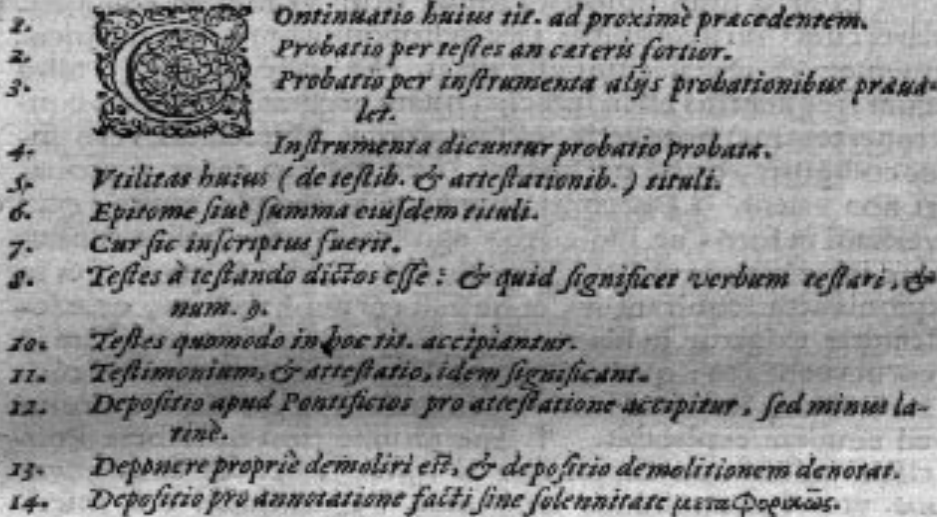 1. COntinuatio huius tit. ad proximè præcedentem.
2. Probatio per testes an cæteris fortior.
3. Probatio per instrumenta alijs probationibus præua-
let.
4. Instrumenta dicuntur probatio probata.
5. Vtilitas huius ( de testib. & attestationib. ) tituli.
6. Epitome siue summa eiusdem tituli.
7. Cur sic inscriptus fuerit.
8. Testes à testando dictos esse : & quid significet verbum testari, &
num. 9.
10. Testes quomodo in hoc tit. accipiantur.
11. Testimonium, & attestatio, idem significant.
12. Depositio apud Pontificios pro attestatione accipitur, sed minus la-
tinè.
13. Deponere propriè demoliri est, & depositio demolitionem denotat.
14. Depositio pro annotatione facti sine solennitate μεταφορικῶς.